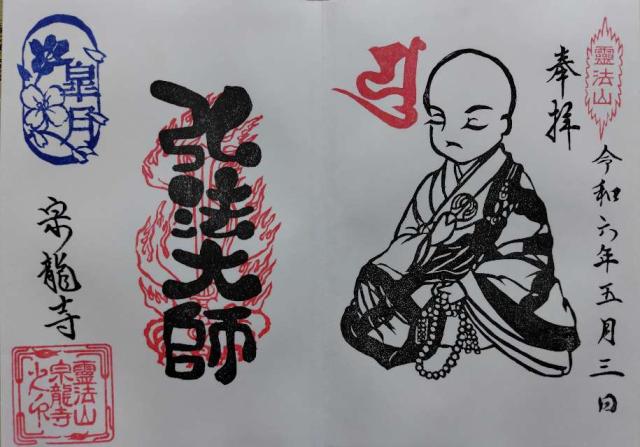 靈法山
奉拝
令和六年五月三日
弘法大師
皐月
宗龍寺
靈法山
宗龍寺